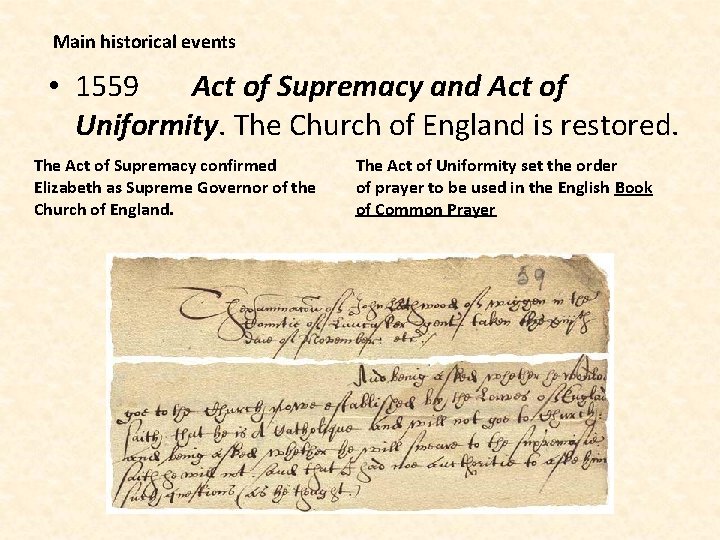 Main historical events
• 1559 Act of Supremacy and Act of
Uniformity. The Church of England is restored.
The Act of Supremacy confirmed
Elizabeth as Supreme Governor of the
Church of England.
The Act of Uniformity set the order
of prayer to be used in the English Book
of Common Prayer
59
of John of wiggen in the
of taken the
daie of November etc
And being asked whether he would
goe to the Church nowe established by the Lawes of England
saith that he is a Catholique and will not goe to Church
and being asked whether he will sweare to the supremacie
saith he will not. And that I had noe authoritie to aske him
such questions (as he thought.)